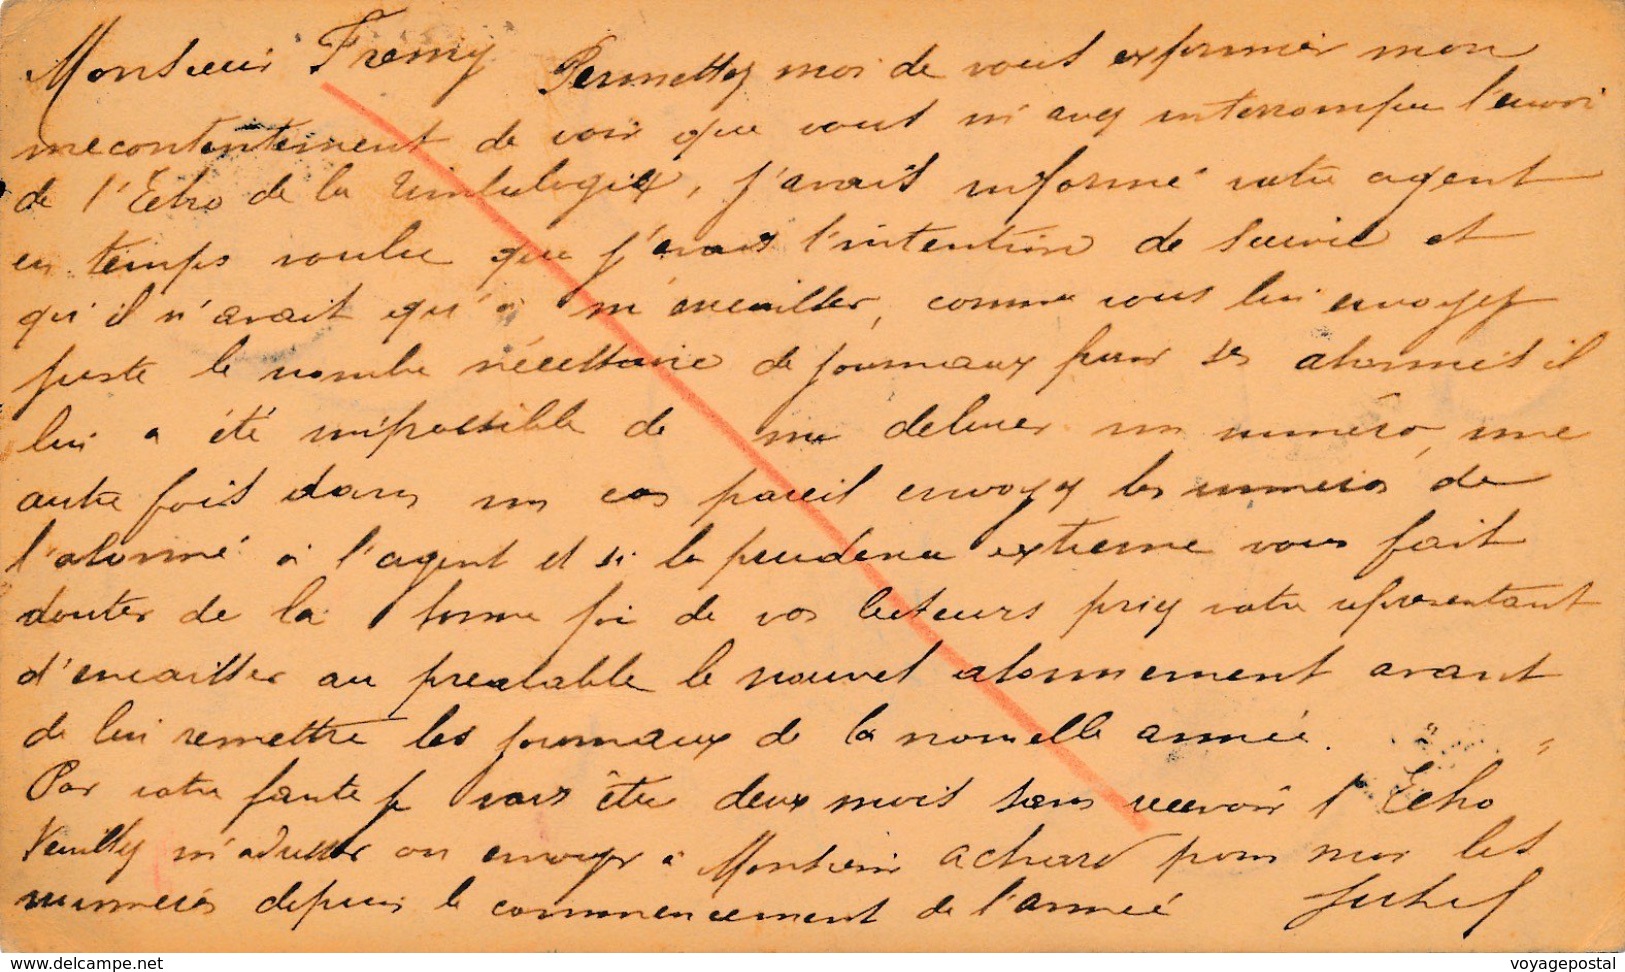 Monsieur Fremy Permettez moi de vous exprimer mon
mecontentement de voir que vous m'avez interrompu l'envoi
de l'Echo de la timbrologie, j'avais informé votre agent
en temps voulu que j'avais l'intention de suivre et
qu'il n'avait qu'à m'encaisser, comme vous lui envoyez
juste le nombre nécessaire de journaux pour ses abonnés il
lui a été impossible de me delivrer un numéro, une
autre fois dans un cas pareil envoyez les numéros de
l'abonné à l'agent et si la prudence extreme vous fait
douter de la bonne foi de vos lecteurs priez votre representant
d'encaisser au prealable le nouvel abonnement avant
de lui remettre les journaux de la nouvelle année.
Par votre faute je vais être deux mois sans recevoir l'Echo
Veuillez m'adresser ou envoyer à Monsieur Achard pour moi les
numéros depuis le commencement de l'année
www.delcampe.net
voyagepostal